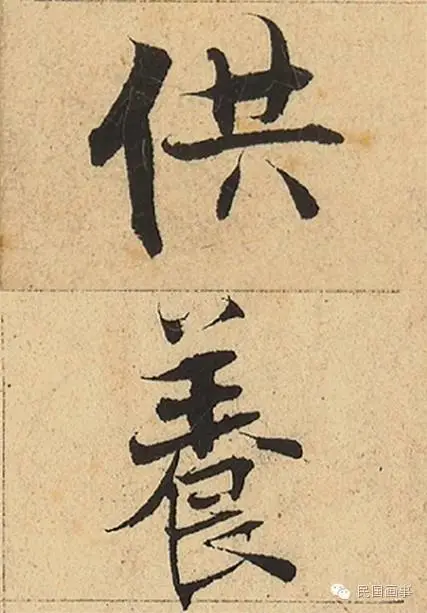 供
養
民国画事